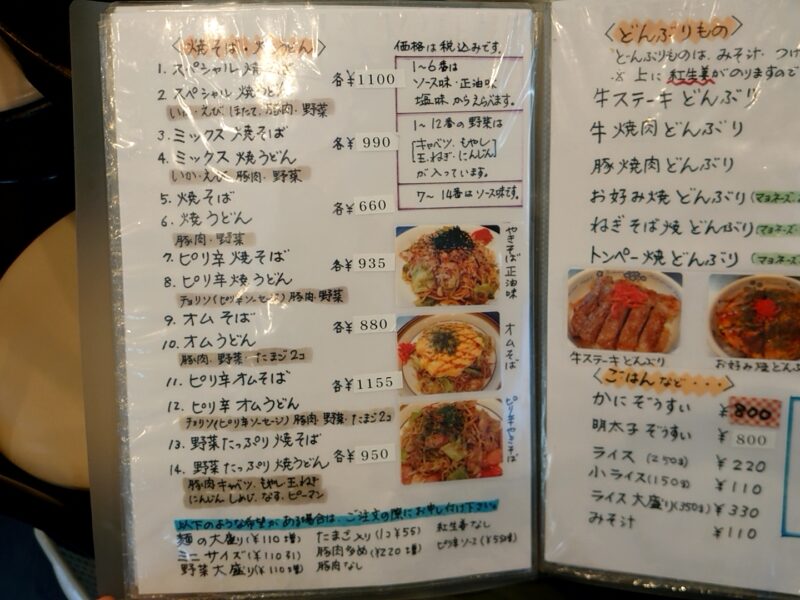 焼そば・焼うどん
価格は税込みです。
1. スペシャル焼そば
2. スペシャル焼うどん
各¥1100
いか・えび ほたて、豚肉・野菜
3. ミックス焼そば
4. ミックス焼うどん
各¥990
いか・えび、豚肉・野菜
5. 焼そば
6. 焼うどん
各¥660
豚肉・野菜
7. ピリ辛焼そば
8. ピリ辛焼うどん
各¥935
チョリソ(ピリ辛ソーセージ)豚肉・野菜
9. オムそば
10. オムうどん
各¥880
豚肉・野菜・たまご2コ
11. ピリ辛オムそば
12. ピリ辛オムうどん
各¥1155
チョリソ(ピリ辛ソーセージ)豚肉・野菜・たまご2コ
13. 野菜たっぷり焼そば
14. 野菜たっぷり焼うどん
各¥950
豚肉 キャベツ、もやし 玉ねぎ
にんじん しめじ、なす、ピーマン
1〜6番は
ソース味・正油味
塩味、からえらべます。
1〜12番の野菜は
キャベツ、もやし
玉ねぎ・にんじん
が入っています。
7〜14番はソース味です。
やきそば正油味
オムそば
ピリ辛やきそば
以下のような希望がある場合は、ご注文の際にお申し付け下さい。
麺の大盛り(¥110増) たまご入り(1コ¥55) 紅生姜なし
ミニサイズ(¥110引) 豚肉多め(¥220増) ピリ辛ソース(¥55増)
野菜大盛り(¥110増) 豚肉なし
どんぶりもの
どんぶりものは、みそ汁・つけ
※上に紅生姜がのりますので
牛ステーキどんぶり
牛焼肉どんぶり
豚焼肉どんぶり
お好み焼どんぶり(マヨネーズ
ねぎそば焼どんぶり(マヨネーズ
トンペー焼どんぶり(マヨネーズ
牛ステーキどんぶり
お好み焼どんぶ
ごはんなど・・・
かにぞうすい ¥800
明太子ぞうすい ¥800
ライス(250g) ¥220
小ライス(150g) ¥110
ライス大盛り(350g) ¥330
みそ汁 ¥110